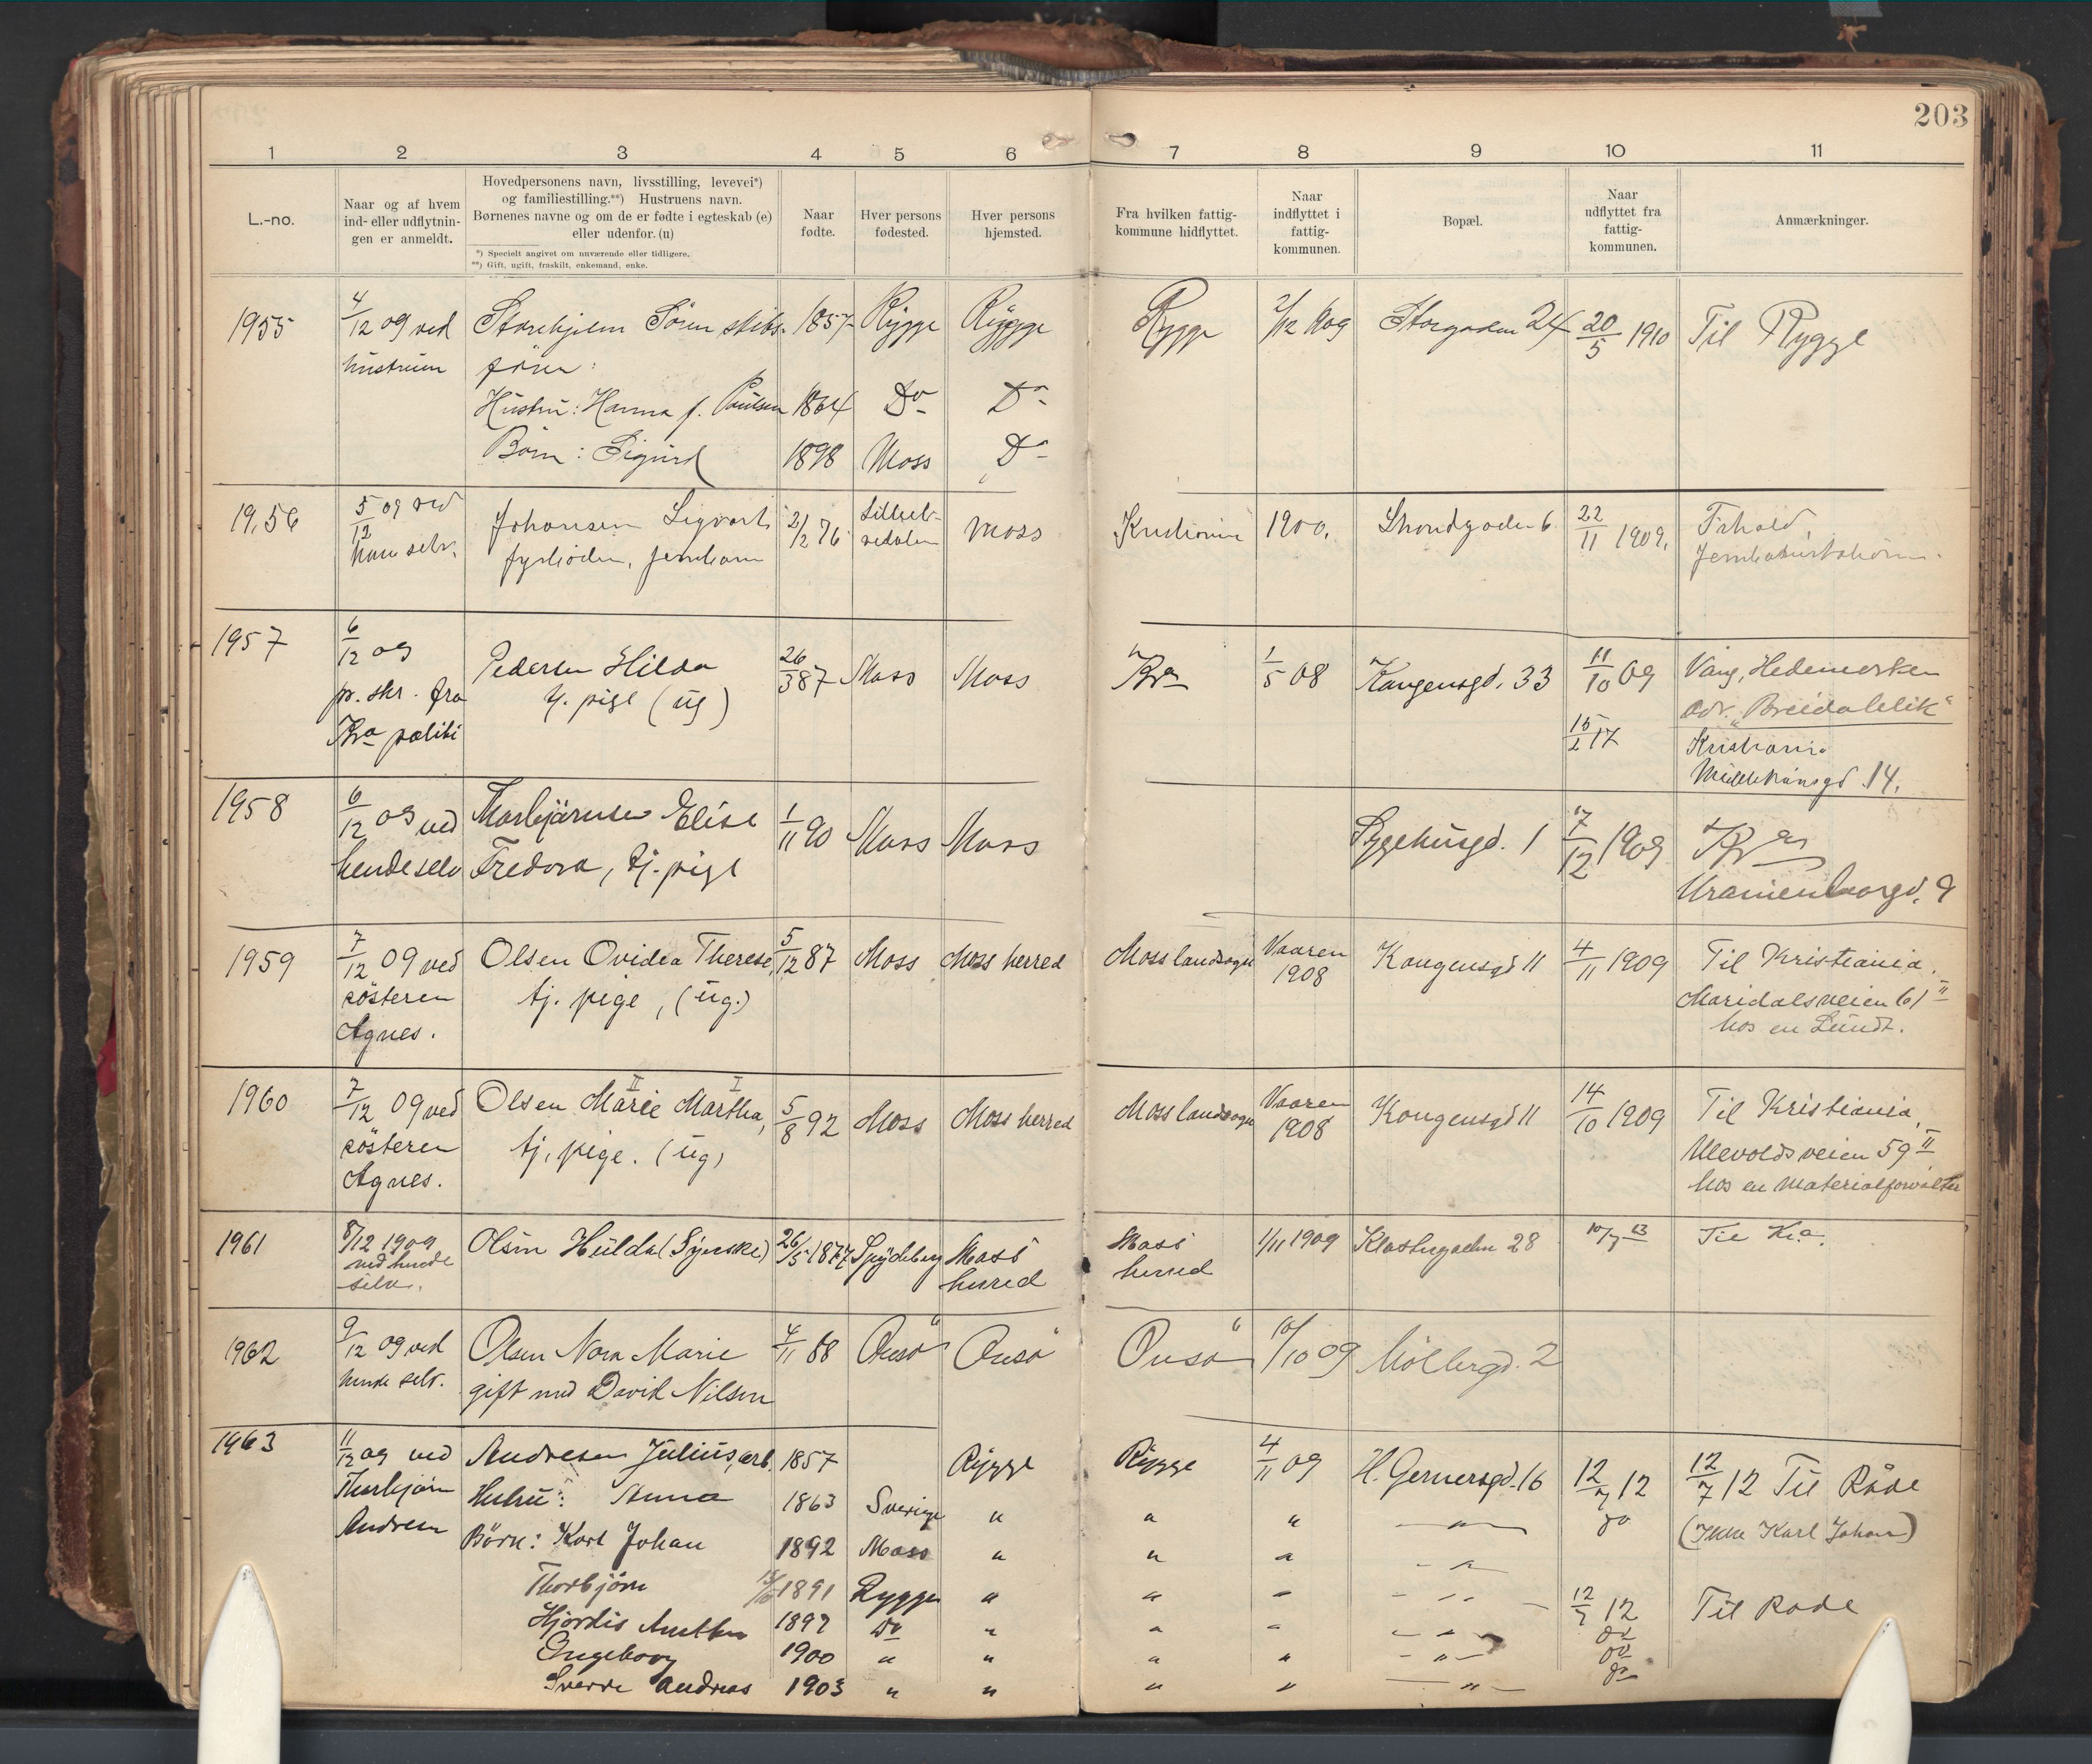 203
1 2 3 4 5 6 7 8 9 10 11
L.-no.
Naar og af hvem
ind- eller udflytnin-
gen er anmeldt.
Hovedpersonens navn, livsstilling, levevei*)
og familiestilling.**) Hustruens navn.
Børnenes navne og om de er fødte i egteskab (e)
eller udenfor. (u)
*) Specielt angivet om nuværende eller tidligere.
**) Gift, ugift, fraskilt, enkemand, enke.
Naar
fødte.
Hver persons
fødested.
Hver persons
hjemsted.
Fra hvilken fattig-
kommune hidflyttet.
Naar
indflyttet i
fattig-
kommunen.
Bopæl.
Naar
udflyttet fra
fattig-
kommunen.
Anmærkninger.
1955 4/12 09 ved Sören skibs- 1857 Rygge Rygge Rygge 2/12 1909 Storgaden 24 20/5 1910 Til Rygge
hustruen fören:
Hustru: Hanna f. Paulsen 1864 Do Do
Börn: Sigurd 1898 Moss Do
1956 5/12 09 ved Johansen Sigvart 2/12 76 Moss Kristiania 1900. Strandgaden 6 22/11 1909.
ham selv. fyrböder,
1957 6/12 09 Pedersen Hilda 26/3 87 Moss Moss Kra 1/5 08 Kongensgd. 33 11/10 09 Vang, Hedemarken
pr. skr. fra tj. pige (ug) adr. "Breidablik"
Kra politi 15/2 17 Kristiania
14.
1958 6/12 09 ved Thorbjörnsen Elise 1/11 90 Moss Moss Sygehusgd. 1 7/12 1909 Kra
hende selv Fredora, tj. pige Uranienborgd. 9
1959 7/12 09 ved Olsen Ovidea Therese, 5/12 87 Moss Moss herred Moss landsogn Vaaren 1908 Kongensgd 11 4/11 1909 Til Kristiania.
søsteren tj. pige, (ug.) Maridalsveien 61 II
Agnes. hos en Lundt.
1960 7/12 09 ved Olsen Marie II Martha I, 5/8 92 Moss Moss herred Moss landsogn Vaaren 1908 Kongensgd 11 14/10 1909 Til Kristiania,
søsteren tj. pige. (ug) Ullevoldsveien 59 II
Agnes. hos en materialforvalter
1961 8/12 1909 Olsen Hulda (Syerske) 26/5 1877 Spydeberg Moss Moss 1/11 1909 Klostergaden 28 10/7 13 Til Kra.
ved hende herred herred
selv.
1962 9/12 09 ved Olsen Nora Marie 4/11 88 Onsö Onsö Onsö 10/10 09 Möllergd. 2
hende selv. gift med David Nilsen
1963 11/12 09 ved Andresen Julius, arb. 1857 Rygge Rygge 4/11 09 H. Gernersgd. 16 12/7 12 12/7 12 Til Råde
Thorbjörn Hustru: Anna 1863 Sverige " " " " do (Ikke Karl Johan)
Andresen Börn: Karl Johan 1892 Moss " " " "
Thorbjörn 15/10 1891 Rygge " " " " 12/7 12 Til Rade
Hjördis 1897 Do " " " " do
Ingeborg 1900 " " " " " do
Sverre Andreas 1903 " " " " " do